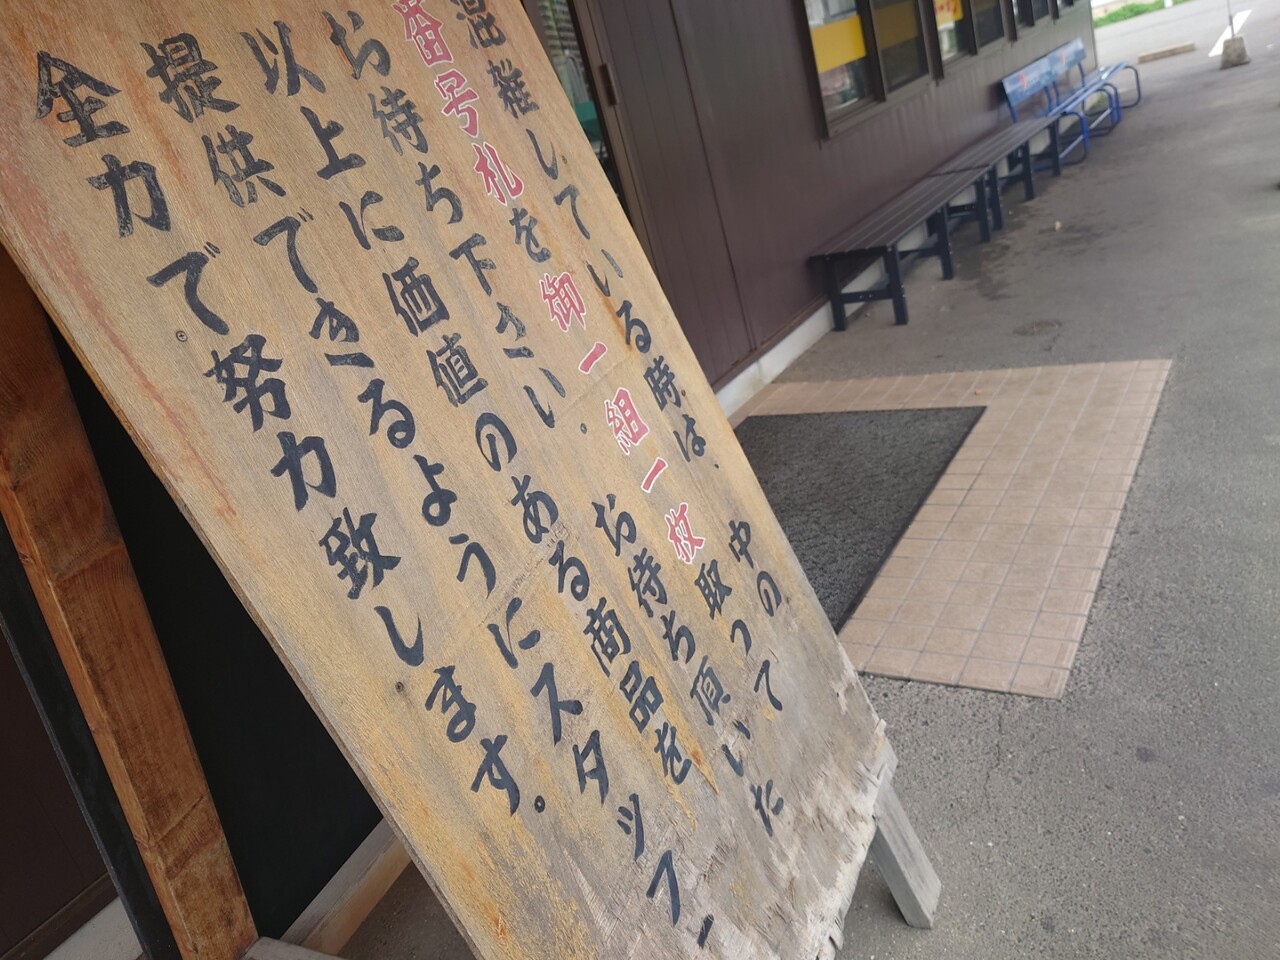 混雑している時は、中の
番号札を御一組一枚取って
お待ち下さい。お待ち頂いた
以上に価値のある商品を
提供できるようにスタッフ一
全力で努力致します。